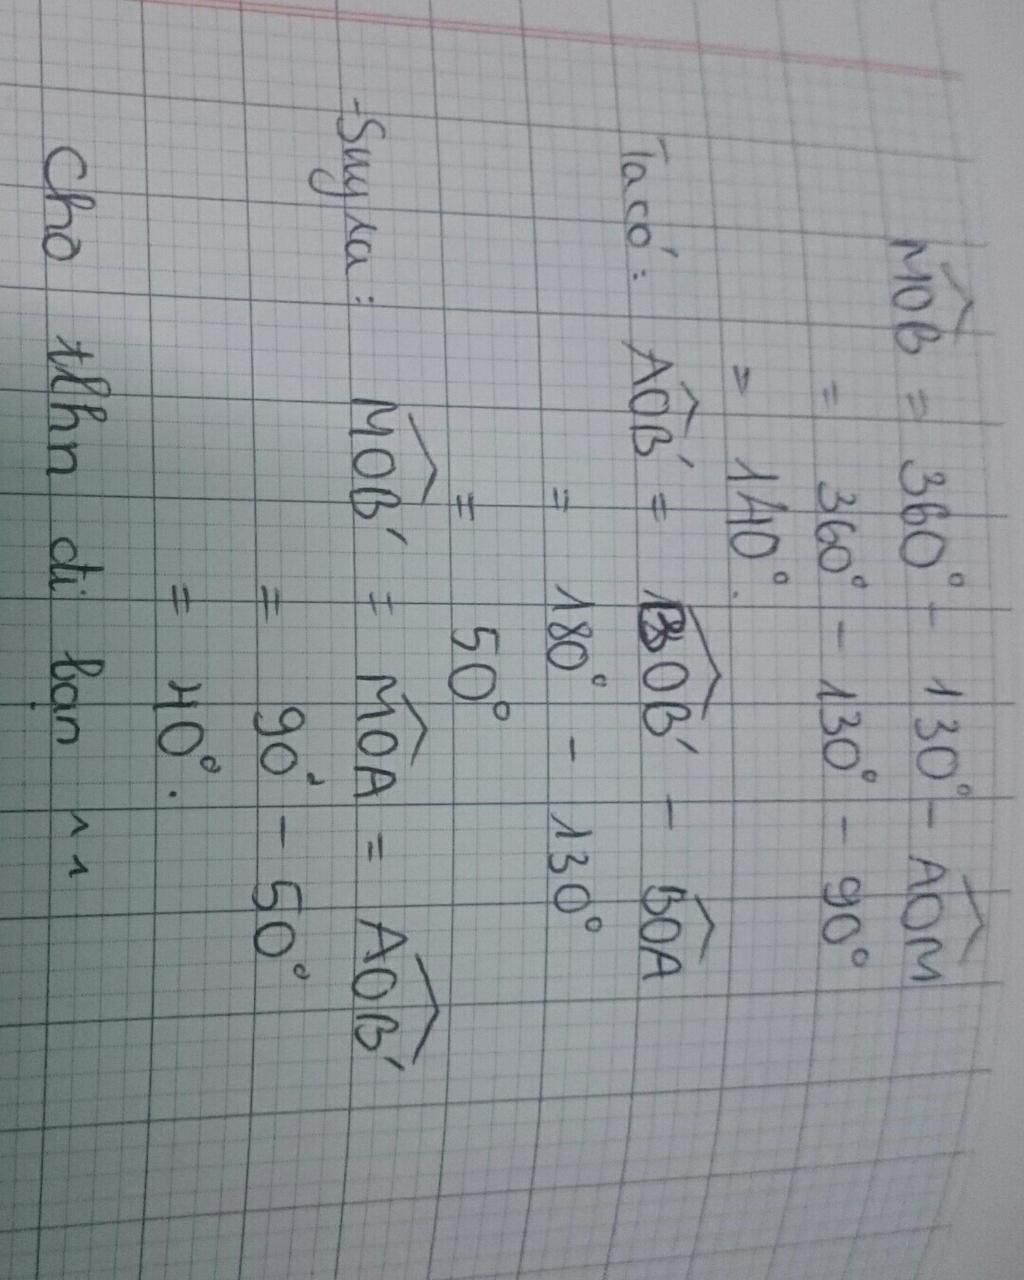 MOB = 360° - 130° - AOM
= 360° - 130° - 90°
= 140°.
Ta có: AOB' = BOB' - BOA
= 180° - 130°
= 50°
- Suy ra: MOB' = MOA = AOB'
= 90° - 50°
= 40°.
Cho tlhn đi bạn ^^